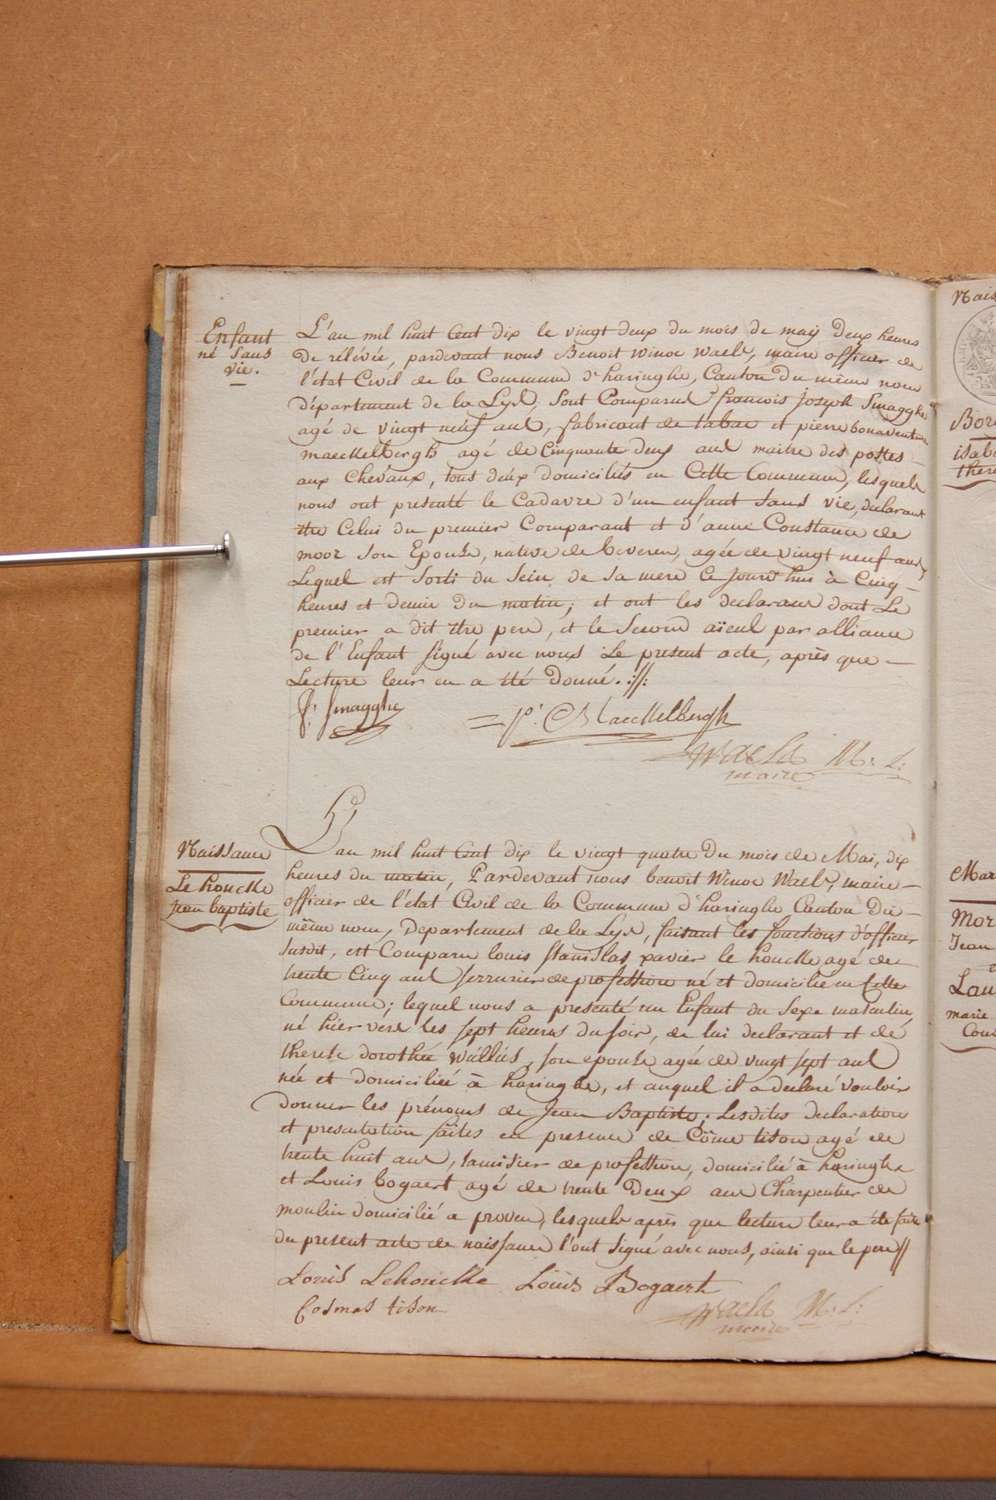 Enfant
né sans
vie.
L'an mil huit Cent dix le vingt deux du mois de maij deux heures
De rélévée, pardevant nous Benoit Winoc Waels, maire officier de
l'état Civil de la Commune d'haringhe, Canton du même nom
département de la Lys, sont Comparus francois joseph Smagghe
agé de vingt neuf ans, fabricant de tabac et pierre bonaventure
maeckelbergh agé de Cinquante deux ans maitre des postes
aux Chevaux, tous deux domiciliés en Cette Commune, lesquels
nous ont presenté le Cadavre d'un enfant sans vie, déclarant
être Celui du premier Comparant et d'anne Constance de
moor son Epouse, native de beveren, agée de vingt neuf ans,
Lequel est sorti du sein de sa mere Ce jourd'hui à Cinq
heures et demie du matin; et ont les declarans dont Le
premier a dit être pere, et le second aïeul par alliance
de l'Enfant signé avec nous Le present acte, après que
Lecture leur en a été donné.
f: Smagghe
p: Maeckelbergh
Waels M: L:
maire
Naissance
Le houcke
jean baptiste
L'an mil huit Cent dix le vingt quatre Du mois de Mai, dix
heures du matin, Pardevant nous benoit Winoc Waels, maire
officier de l'état Civil de la Commune d'haringhe Canton Du
même nom, Departement de la Lys, faisant les fonctions d'officier
susdit, est Comparu louis stanislas xavier le houcke agé de
trente Cinq ans serrurier de profession né et domicilié en Cette
Commune; lequel nous a presenté un Enfant du sexe masculin,
né hier vers les sept heures du soir, de lui declarant et de
therese dorothée Wullus, son epouse agée de vingt sept ans
née et domiciliée à haringhe, et auquel il a declaré vouloir
donner les prénoms de Jean Baptiste; Lesdites declaration
et presentation faites en presence de Côme tison agé de
trente huit ans, tamisier de profession, domicilié à haringhe
et Louis bogaert agé de trente Deux ans Charpentier de
moulin domicilié a proven, lesquels après que lecture leur a été faite
du present acte de naissance l'ont signé avec nous, ainsi que le pere
Louis Lehoucke Louis Bogaert
Cosmas tison
Waels M: L:
maire
Nais
Bor
isab
there
Mar
Mor
Jean
Lau
marie
Con